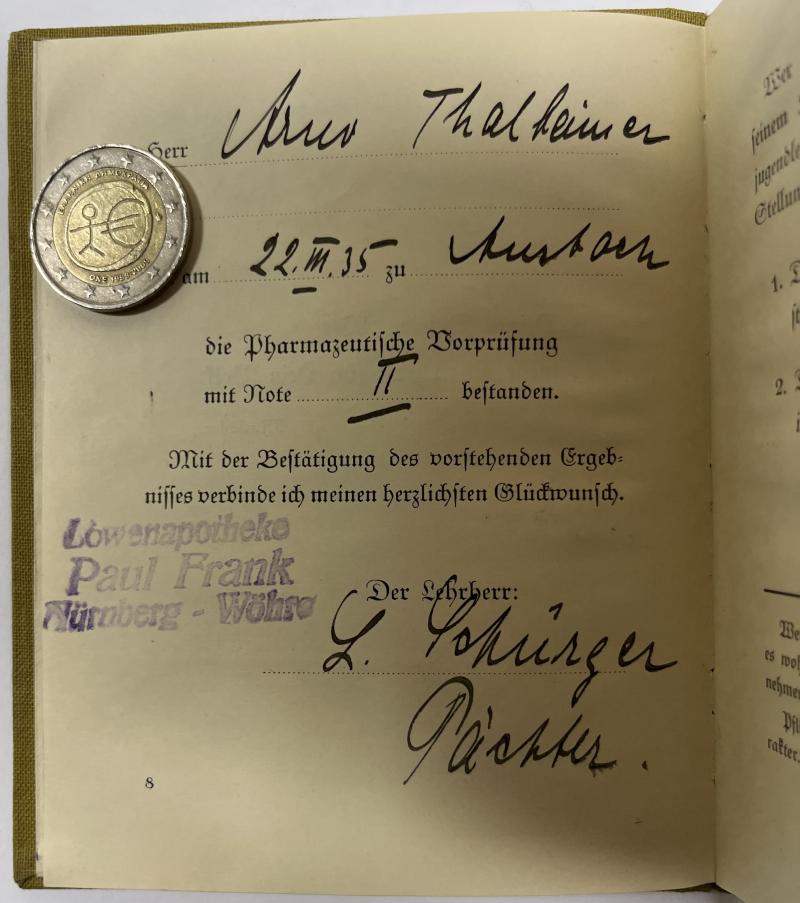 Herr Arno Thalheimer
am 22. III. 35 zu Ansbach
die Pharmazeutische Vorprüfung
mit Note II bestanden.
Mit der Bestätigung des vorstehenden Ergeb-
nisses verbinde ich meinen herzlichsten Glückwunsch.
Löwenapotheke
Paul Frank
Nürnberg - Wöhrd
Der Lehrherr:
L. Schürger
Pächter.
8
Wer
seinem
jugendle
Stellun
1.
2.
We
es woh
nehmen
Pfl
rakter.
ΕΛΛΗΝΙΚΗ ΔΗΜΟΚΡΑΤΙΑ
€
ΟΝΕ 1999-2009